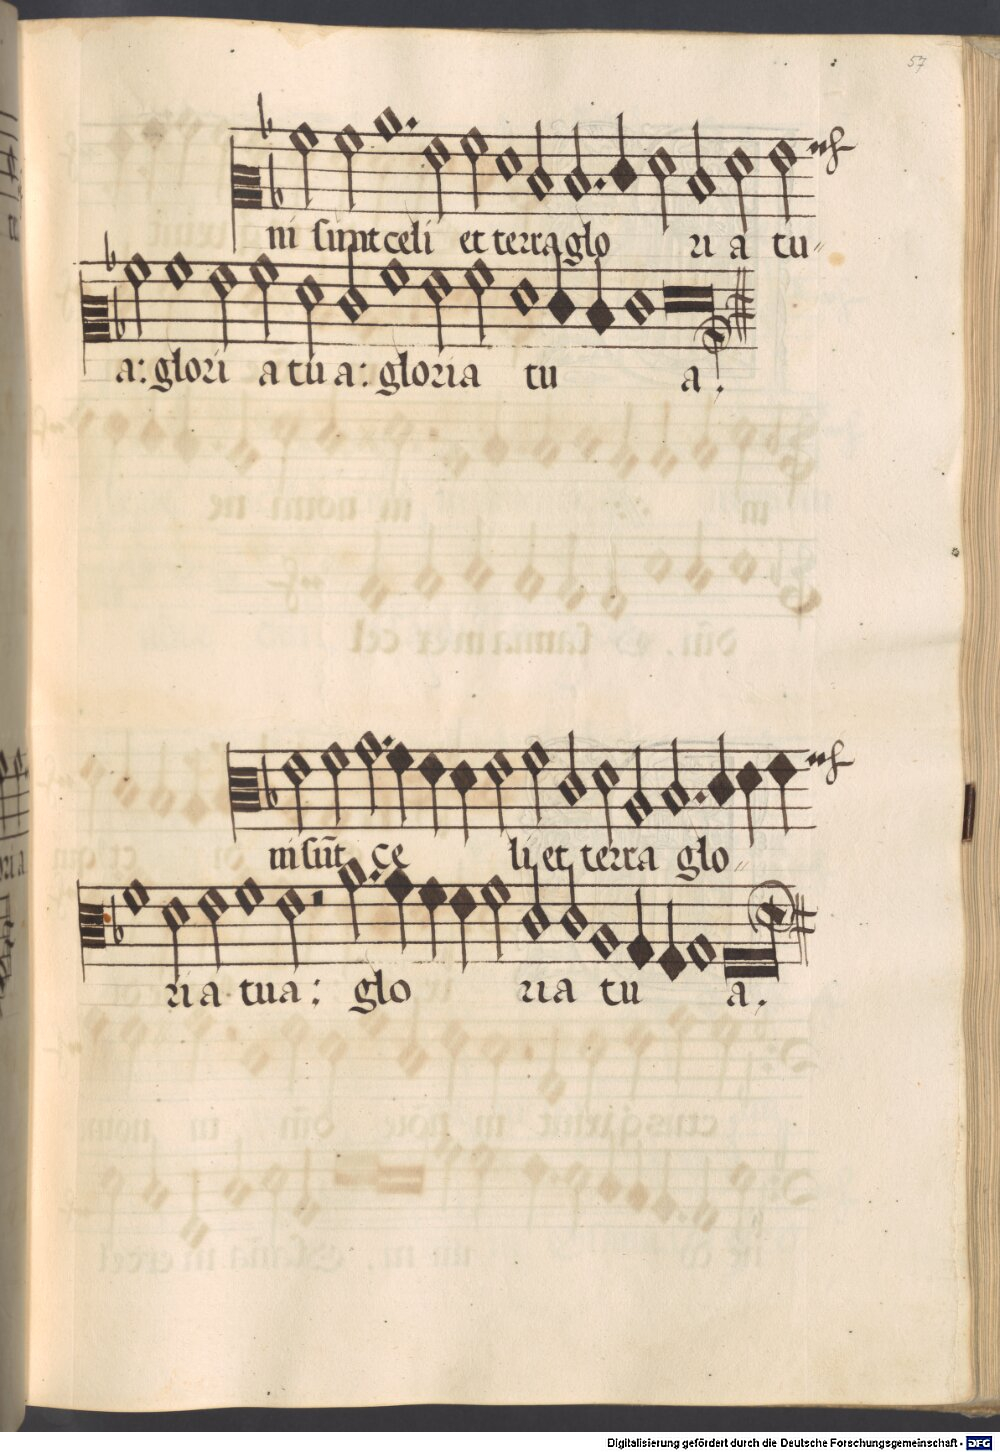 57
ni sunt celi et terra glo ri a tu
a: glori a tu a: gloria tu a.
ni sūt ce li et terra glo
ri a tua: glo ria tu a.
Digitalisierung gefördert durch die Deutsche Forschungsgemeinschaft - DFG